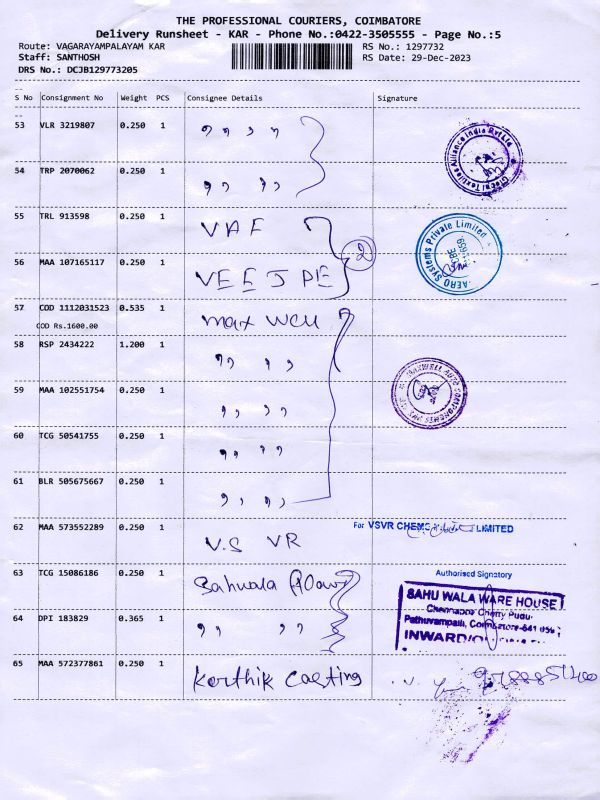 THE PROFESSIONAL COURIERS, COIMBATORE
Delivery Runsheet - KAR - Phone No.:0422-3505555 - Page No.:5
Route: VAGARAYAMPALAYAM KAR RS No.: 1297732
Staff: SANTHOSH RS Date: 29-Dec-2023
DRS No.: DCJB129773205
S No Consignment No Weight PCS Consignee Details Signature
53 VLR 3219807 0.250 1 " "
Global Textiles Alliance India Pvt Ltd
54 TRP 2070062 0.250 1 " "
55 TRL 913598 0.250 1 VAF
AERO Systems Private Limited
2
56 MAA 107165117 0.250 1 VEEJ PE
57 COD 1112031523 0.535 1 max well
COD Rs.1600.00
58 RSP 2434222 1.200 1 " "
59 MAA 102551754 0.250 1 " "
60 TCG 50541755 0.250 1 " "
61 BLR 505675667 0.250 1 " "
For VSVR CHEMS LIMITED
62 MAA 573552289 0.250 1 V.S VR
Authorised Signatory
63 TCG 15086186 0.250 1 Sahuwala
SAHU WALA WARE HOUSE
64 DPI 183829 0.365 1 " "
Pathuvampalli, Coimbatore-641
INWARD
65 MAA 572377861 0.250 1 Karthik Casting